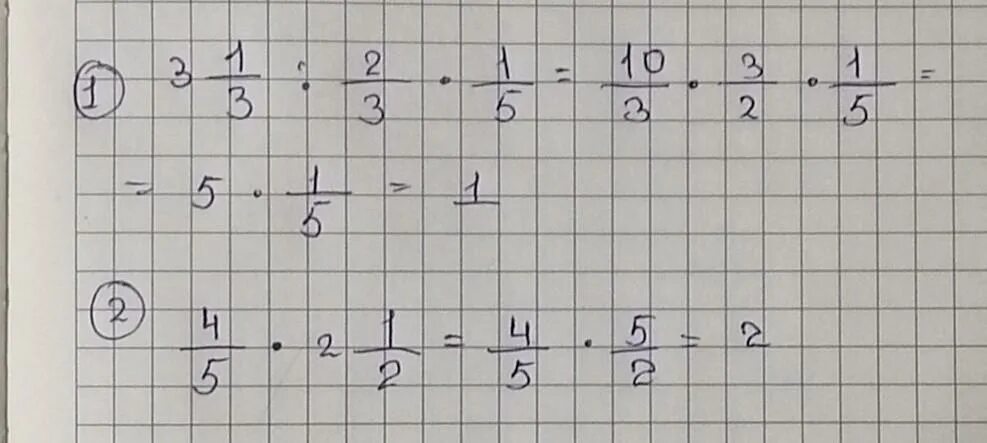 ① 3 1/3 : 2/3 · 1/5 = 10/3 · 3/2 · 1/5 =
= 5 · 1/5 = 1
② 4/5 · 2 1/2 = 4/5 · 5/2 = 2